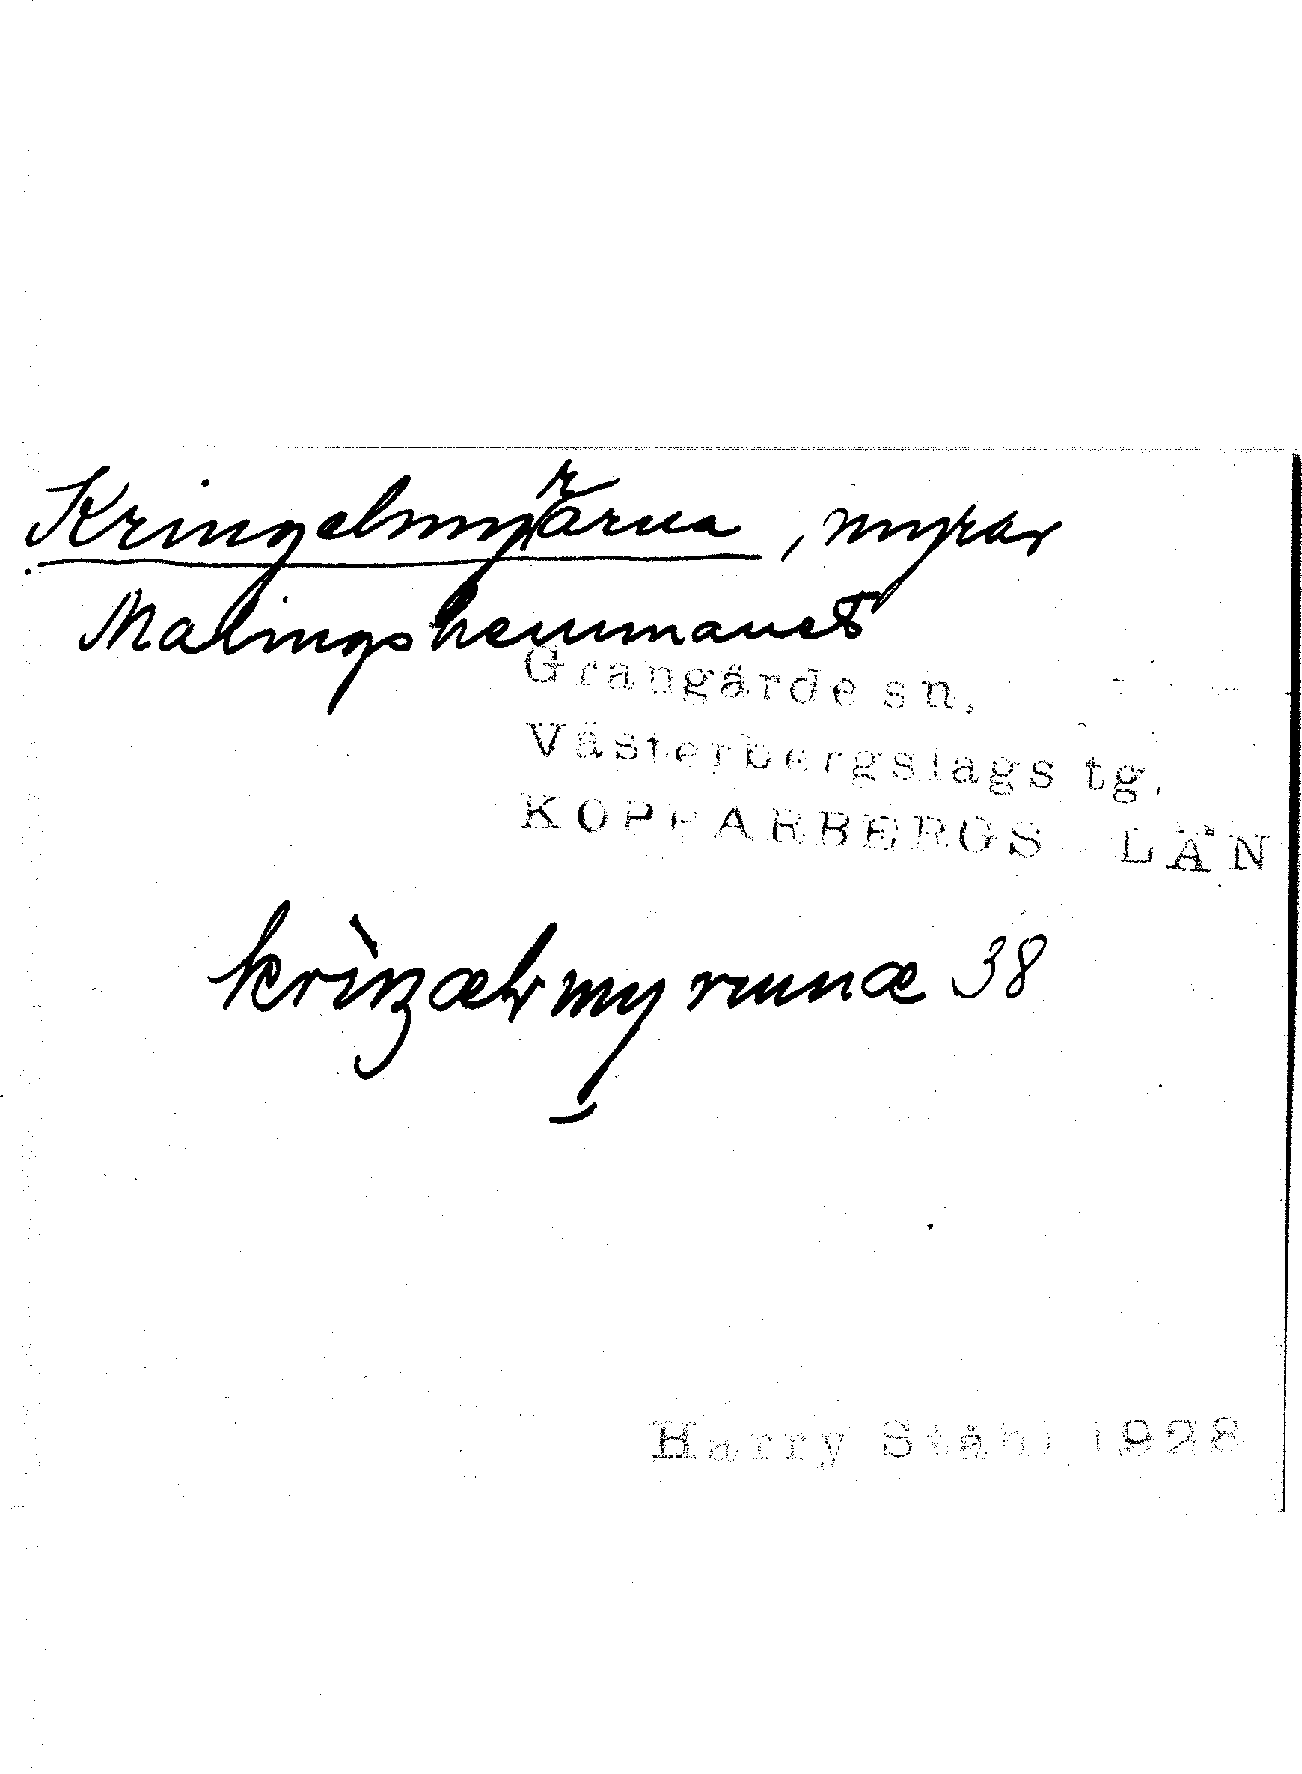 Kringelmyrarna, myrar
Malingshemmanet
Grangärde sn,
Västerbergslags tg.
KOPPARBERGS LÄN
38
Harry Ståhl 1928